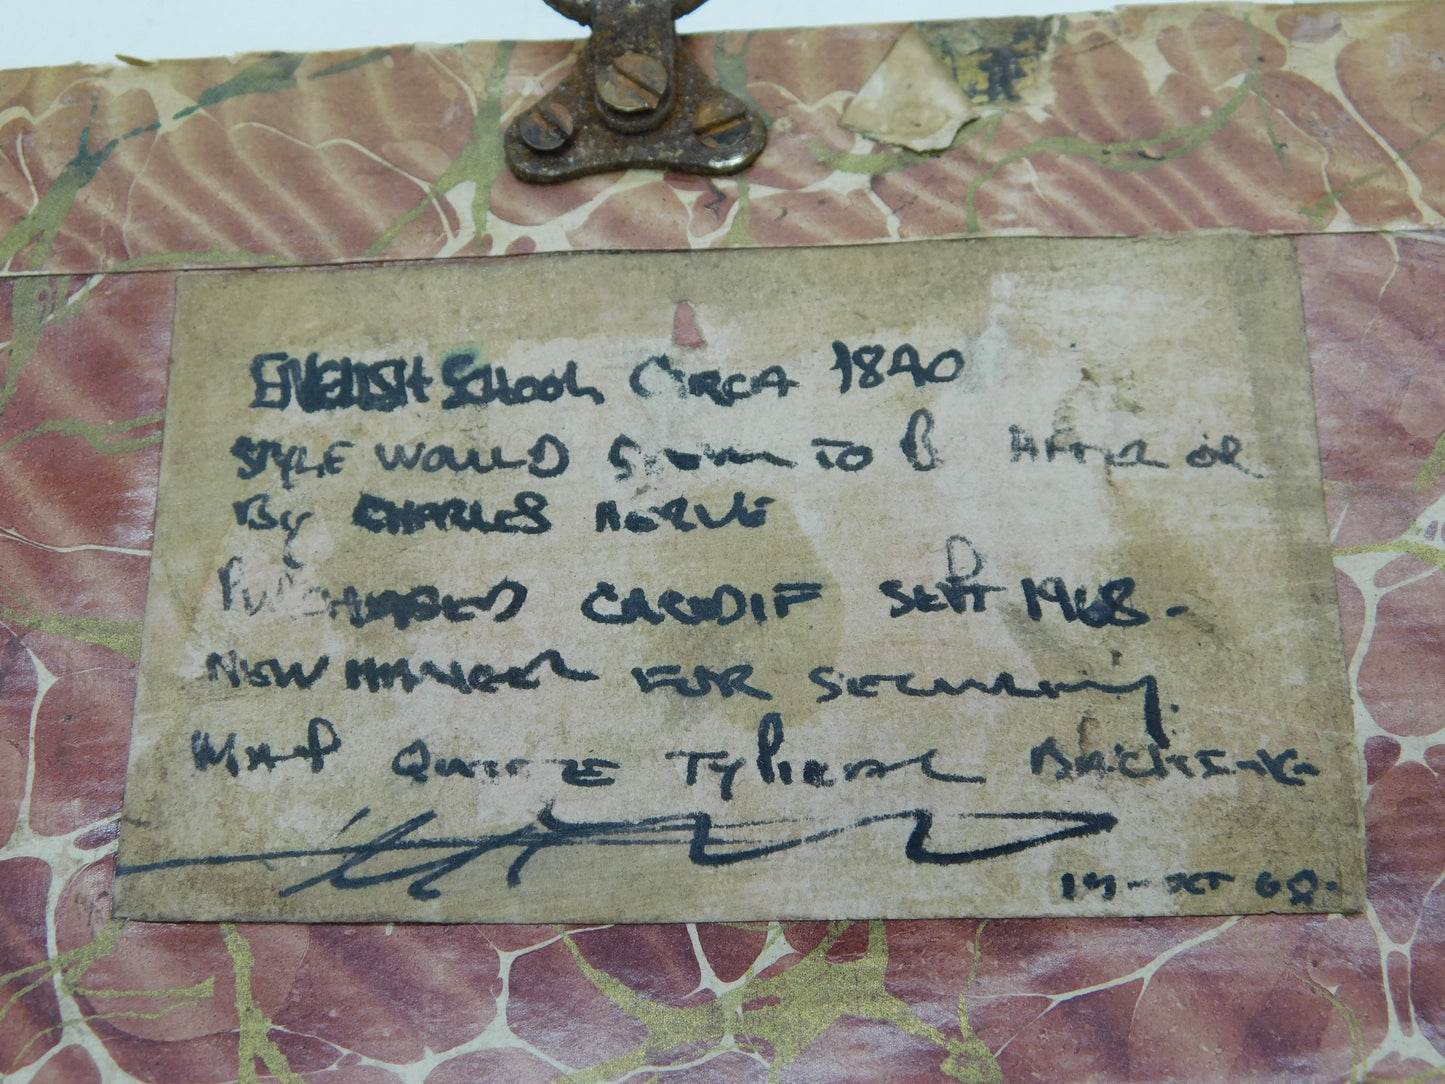 ENGLISH SCHOOL CIRCA 1840
STYLE WOULD SEEM TO B AFTER OR
By CHARLES HERVE
PURCHASED CARDIFF SEPT 1968 -
NEW HANGER FOR SECURITY.
QUITE TYPICAL BACKING
OCT 68.